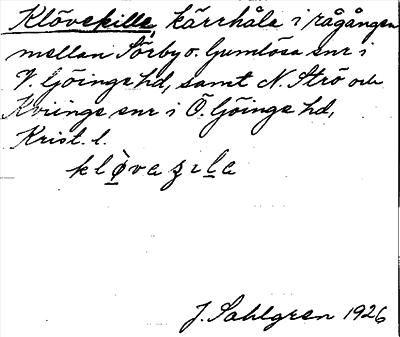 Klövekille, kärrhåla i rågången
mellan Sörby o. Gumlösa snr i
V. Göinge hd, samt N. Strö och
Kviinge snr i Ö. Göinge hd,
Krist. l.
J. Sahlgren 1926